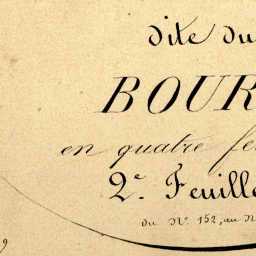 dite du
BOUR
en quatre fe
2e. Feuille
du No. 152, au N
9